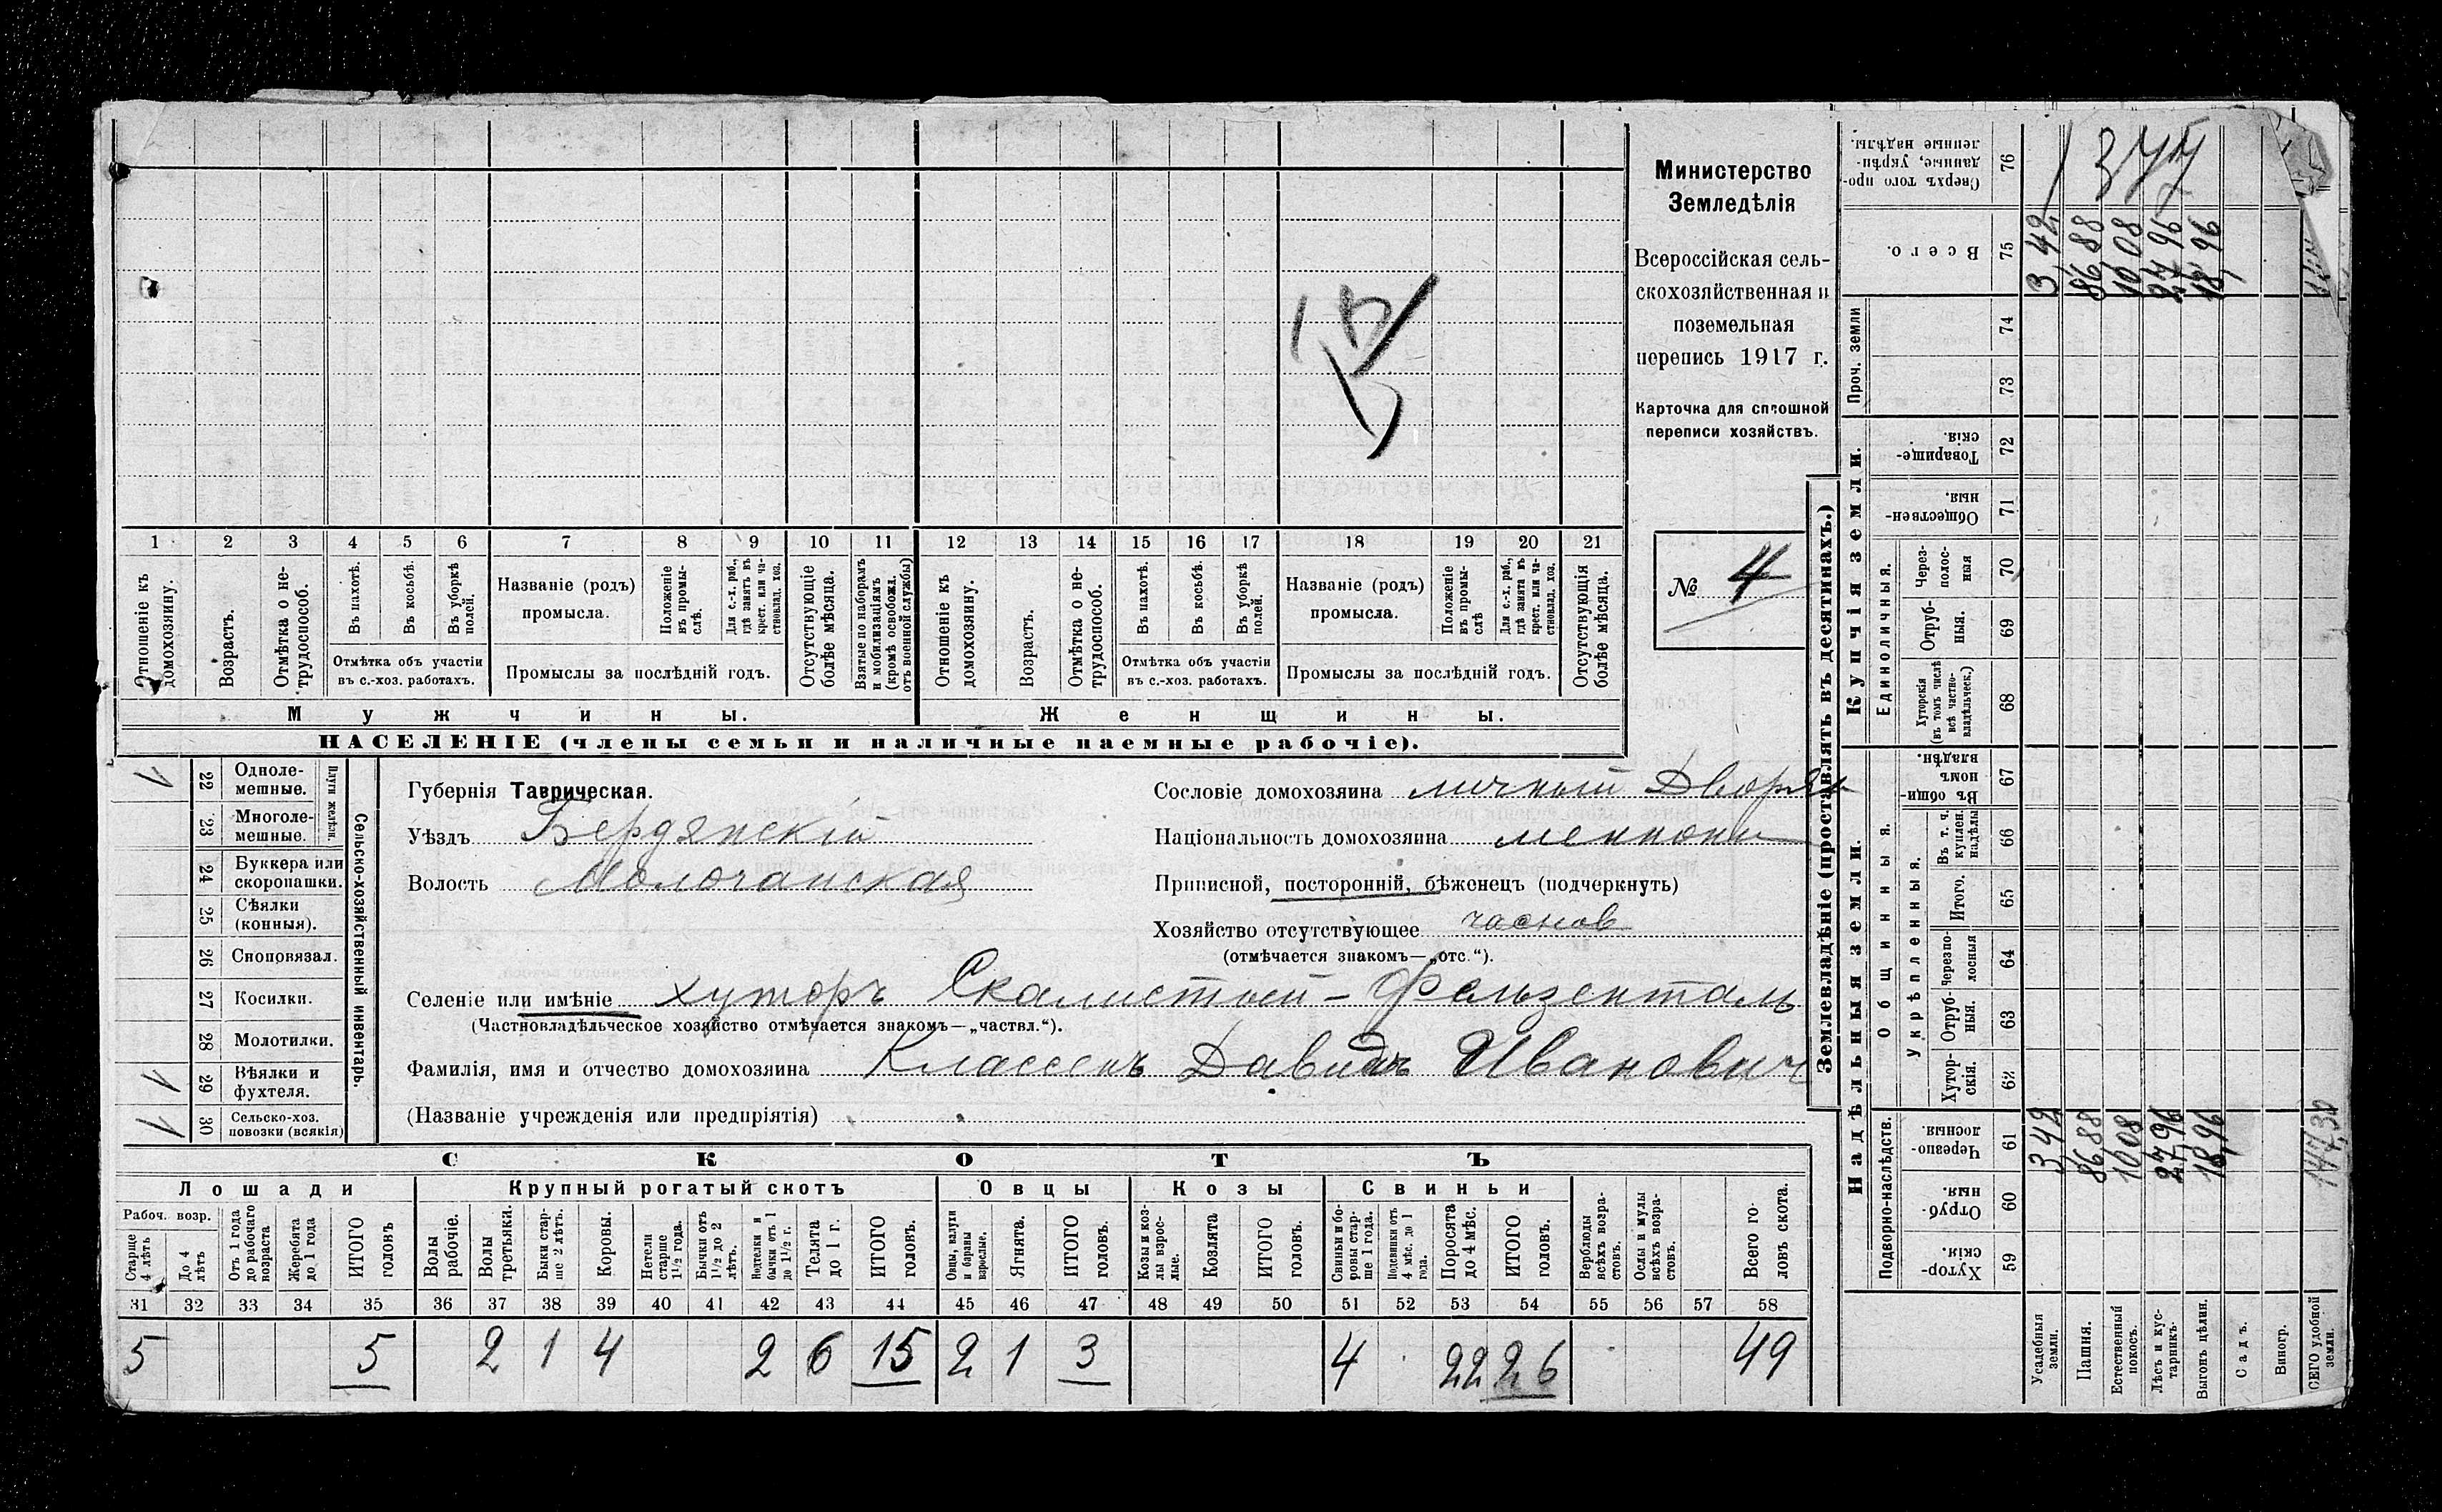 1 2 3 4 5 6 7 8 9 10 11 12 13 14 15 16 17 18 19 20 21
Отношеніе къ домохозяину.
Возрастъ.
Отмѣтка о не-
трудоспособ.
Въ пахотѣ.
Въ косьбѣ.
Въ уборкѣ полей.
Отмѣтка объ участіи
въ с.-хоз. работахъ.
Названіе (родъ)
промысла.
Положеніе въ промы-
слѣ.
Для с.-х. раб., гдѣ занятъ въ крест. или ча-
стновлад. хоз.
Промыслы за послѣдній годъ.
Отсутствующіе болѣе мѣсяца.
Взятые по наборамъ и мобилизаціямъ (кромѣ освобожд. отъ военной службы)
Отношеніе къ домохозяину.
Возрастъ.
Отмѣтка о не-
трудоспособ.
Въ пахотѣ.
Въ косьбѣ.
Въ уборкѣ полей.
Отмѣтка объ участіи
въ с.-хоз. работахъ.
Названіе (родъ)
промысла.
Положеніе въ промы-
слѣ
Для с.-х. раб., гдѣ занята въ крест. или ча-
стновлад. хоз.
Промыслы за послѣдній годъ.
Отсутствующія болѣе мѣсяца.
Мужчины.
Женщины.
НАСЕЛЕНІЕ (члены семьи и наличные наемные рабочіе).
Министерство
Земледѣлія
Всероссійская сель-
скохозяйственная и
поземельная
перепись 1917 г.
Карточка для сплошной
переписи хозяйствъ.
№ 4
Сельско-хозяйственный инвентарь.
Плуги желѣзн.
22 Однолемешные. 1
23 Многолемешные.
24 Буккера или скоропашки.
25 Сѣялки (конныя).
26 Сноповязал.
27 Косилки.
28 Молотилки.
29 Вѣялки и фухтеля. 1 1
30 Сельско-хоз. повозки (всякія) 1 1
Губернія Таврическая.
Уѣздъ Бердянскій
Волость Молочанская
Сословіе домохозяина личный Дворян
Національность домохозяина менони
Приписной, посторонній, бѣженецъ (подчеркнуть)
Хозяйство отсутствующее частнов
(отмѣчается знакомъ—„отс.“).
Селеніе или имѣніе хуторъ Скалистый - Фельзенталь
(Частновладѣльческое хозяйство отмѣчается знакомъ—„частвл.“).
Фамилія, имя и отчество домохозяина Классенъ Давидъ Ивановичъ
(Названіе учрежденія или предпріятія)
СКОТЪ
Лошади
Крупный рогатый скотъ
Овцы
Козы
Свиньи
Рабоч. возр.
Старше 4 лѣтъ
До 4 лѣтъ
Отъ 1 года до рабочаго возраста
Жеребята до 1 года
ИТОГО головъ
Волы рабочіе.
Волы третьяки.
Быки стар-
ше 2 лѣтъ.
Коровы.
Нетели старше 1½ года.
Бычки отъ 1½ до 2 лѣтъ.
Подтелки и бычки отъ 1 до 1½ г.
Телята до 1 г.
ИТОГО головъ.
Овцы, валухи и бараны взрослые.
Ягнята.
ИТОГО головъ.
Козы и коз-
лы взрос-
лые.
Козлята
ИТОГО головъ.
Свиньи и бо-
ровы стар-
ше 1 года.
Подсвинки отъ 4 мѣс. до 1 года.
Поросята до 4 мѣс.
ИТОГО головъ.
Верблюды всѣхъ возра-
стовъ.
Ослы и мулы всѣхъ возра-
стовъ.
Всего го-
ловъ скота.
31 32 33 34 35 36 37 38 39 40 41 42 43 44 45 46 47 48 49 50 51 52 53 54 55 56 57 58
5 5 2 1 4 2 6 15 2 1 3 4 22 26 49
Землевладѣніе (проставлять въ десятинахъ.)
Сверхъ того про-
данные, укрѣп-
ленные надѣлы.
76
1377
Всего.
75
3,42 86,88 10,08 27,96 18,96
Купчія земли.
Проч. земли
74
73
Товарище-
скія.
72
Обществен-
ныя.
71
Единоличныя.
Через-
полос-
ныя
70
Отруб-
ныя.
69
Хуторскія (въ томъ числѣ всѣ частно-
владѣльческ.)
68
Надѣльныя земли.
Общинныя.
Въ общин-
номъ владѣн.
67
Укрѣпленныя.
Въ т. ч. куплен. надѣлы
66
Итого.
65
Черезпо-
лосныя
64
Отруб-
ныя.
63
Хутор-
скія.
62
Подворно-наслѣдств.
Черезпо-
лосныя.
61
3,42 86,88 10,08 27,96 18,96 147,30
Отруб-
ныя
60
Хутор-
скія.
59
Усадебныя земли.
Пашня.
Естественный покосъ.
Лѣсъ и кус-
тарникъ.
Выгонъ цѣлин.
Садъ.
Виногр.
ВСЕГО удобной земли.